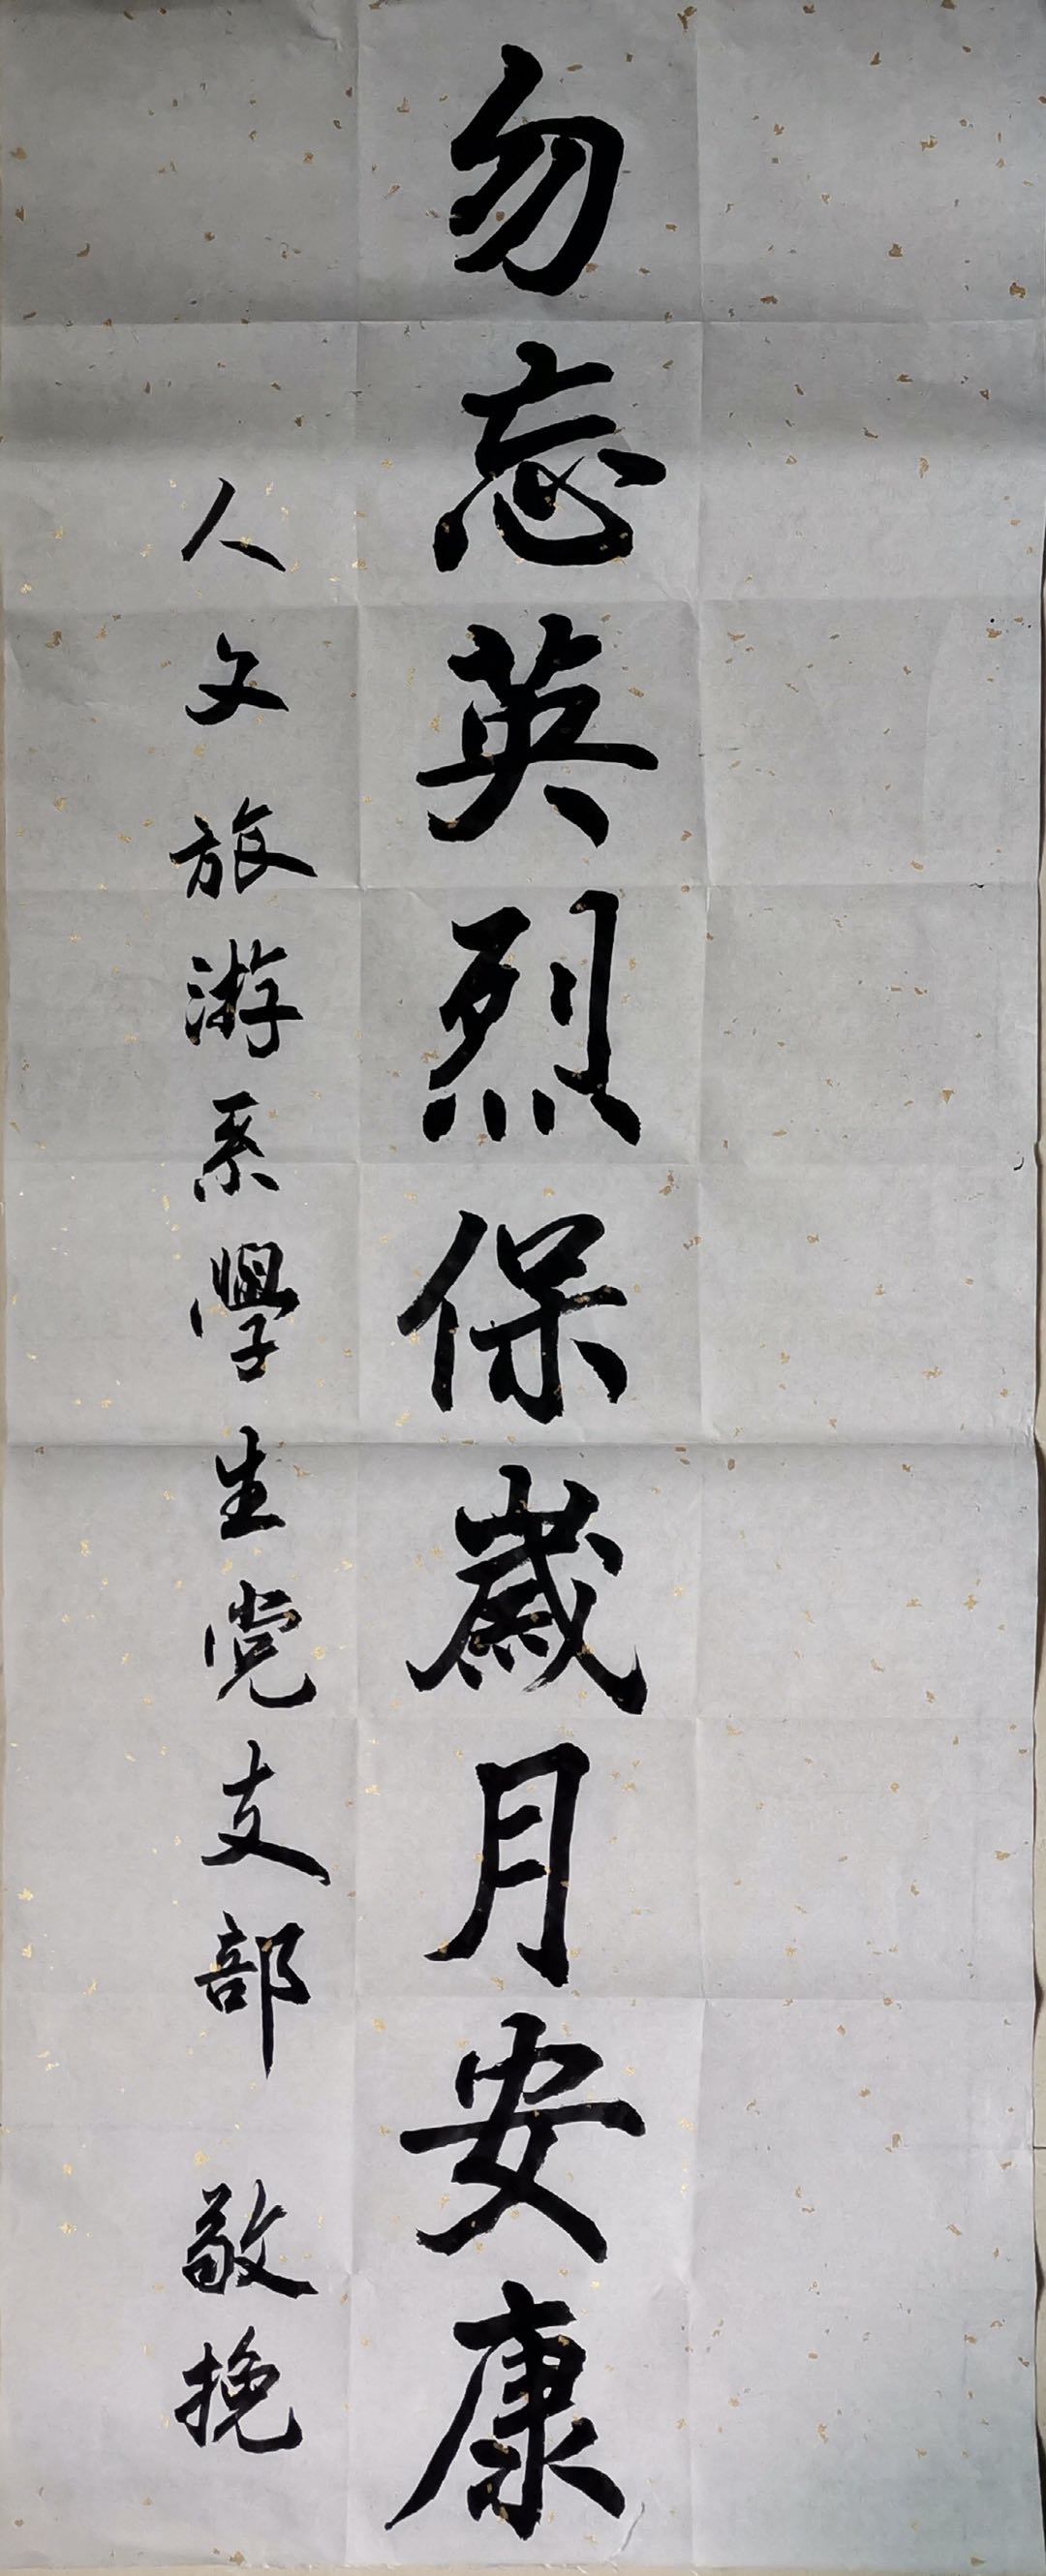 勿忘英烈保歲月安康
人文旅游系學生党支部 敬挽